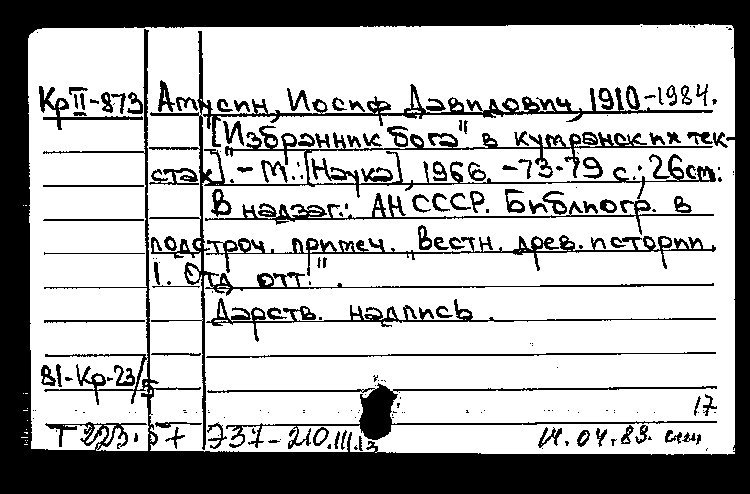 Кр II-873 Амусин, Иосиф Давидович, 1910-1984.
"[Избранник бога" в кумранских тек-
стах]. - М.: [Наука], 1966. - 73-79 с.; 26 см.
В надзаг.: АН СССР. Библиогр. в
подстроч. примеч. "Вестн. древ. истории.
1. Отд. отт.".
Дарств. надпись.
В1-Кр-23/5
17
Т 223. 57 737-210.III.13 14.04.89.